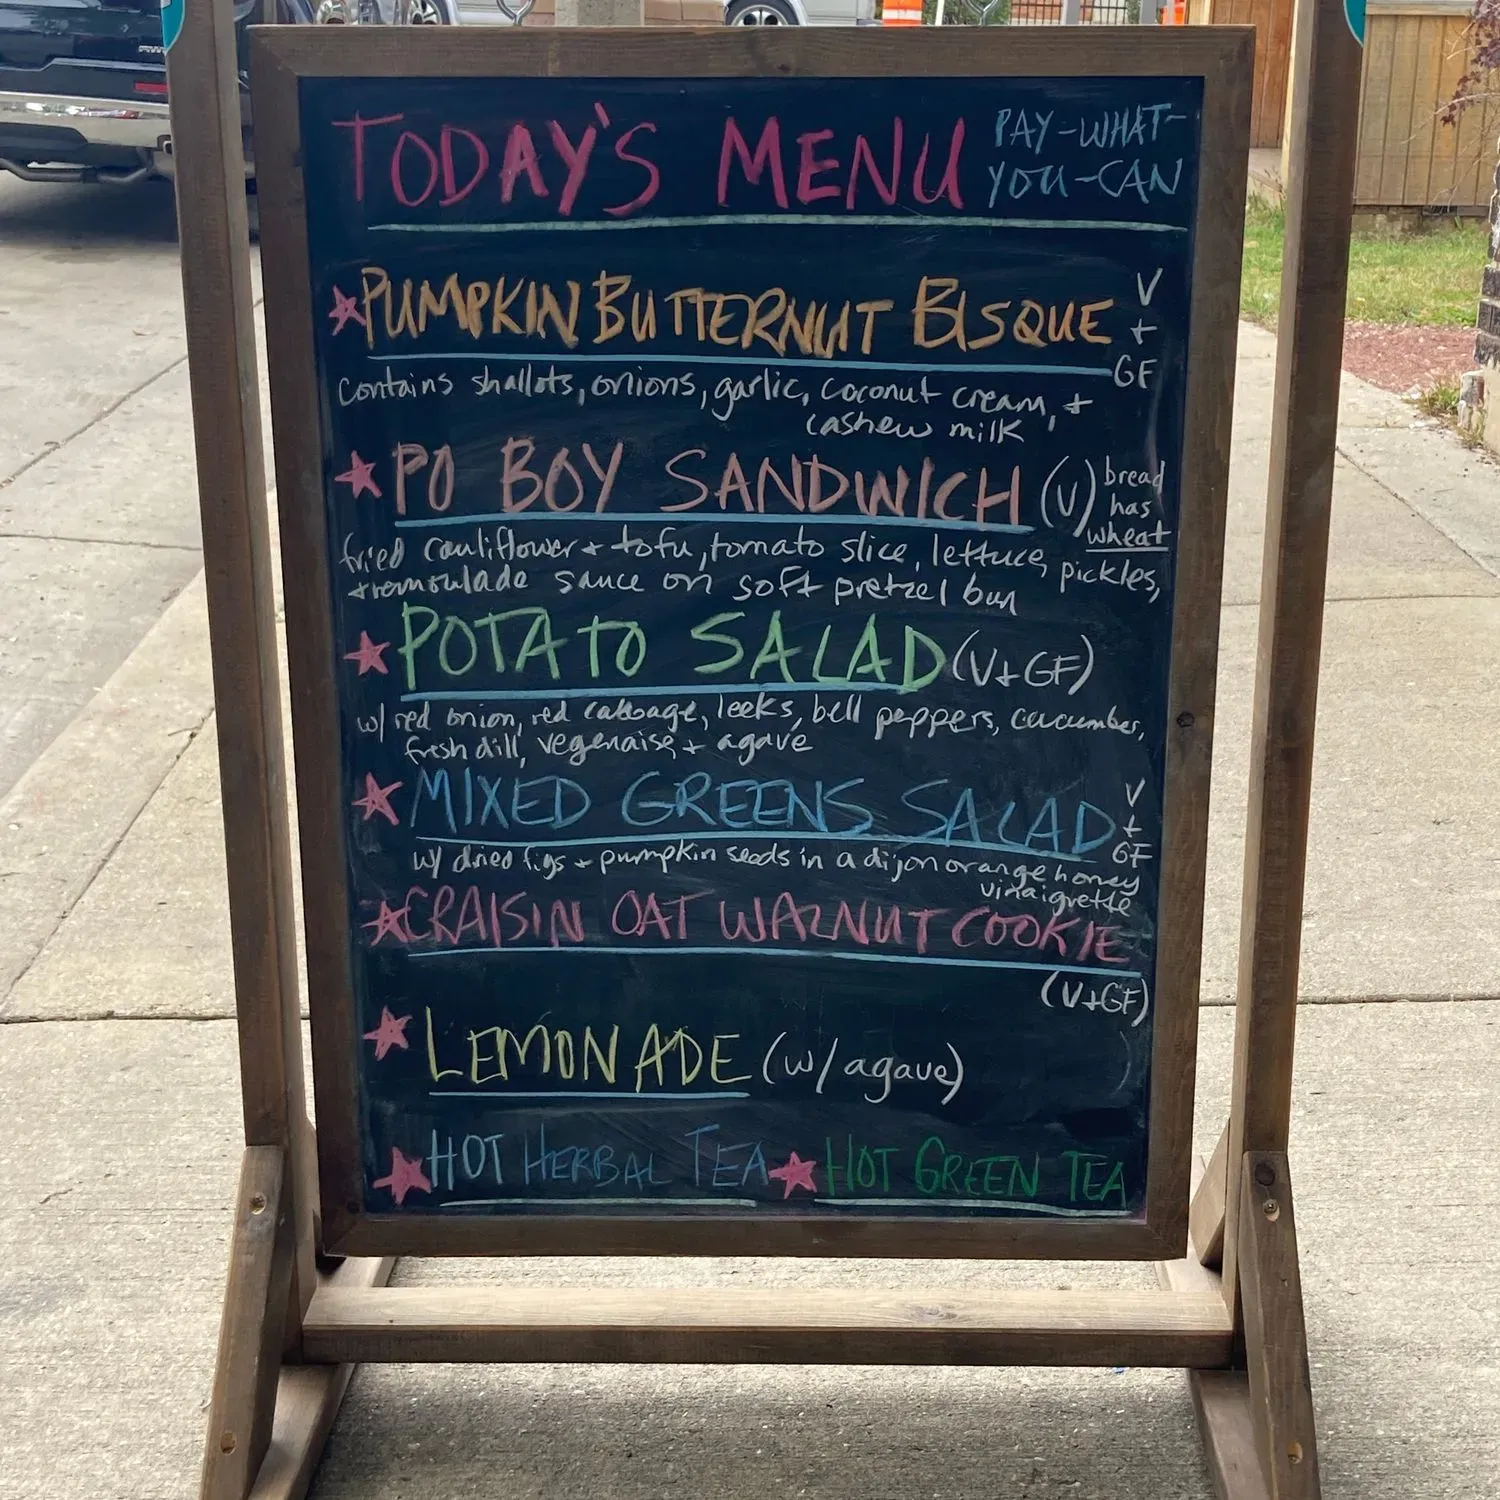 TODAY'S MENU PAY-WHAT-
YOU-CAN
PUMPKIN BUTTERNUT BISQUE V
+
GF
Contains shallots, onions, garlic, coconut cream, +
cashew milk
PO BOY SANDWICH (V) bread
has
wheat
fried cauliflower + tofu, tomato slice, lettuce, pickles,
+ remoulade sauce on soft pretzel bun
POTATO SALAD (V+GF)
w/ red onion, red cabbage, leeks, bell peppers, cucumber,
fresh dill, vegenaise, + agave
MIXED GREENS SALAD V
+
GF
w/ dried figs + pumpkin seeds in a dijon orange honey
vinaigrette
CRAISIN OAT WALNUT COOKIE
(V+GF)
LEMONADE (w/ agave)
HOT HERBAL TEA HOT GREEN TEA